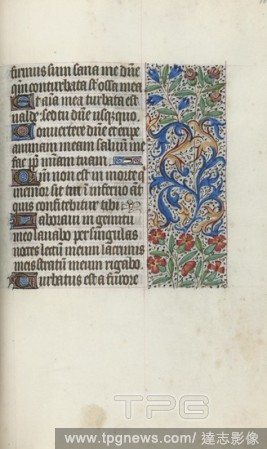 firmus sum sana me dñe
qm conturbata st ossa mea
Et aīa mea turbata est
valde: sed tu dñe usquequo.
Convertere dñe et eripe
animam meam salvū me
fac pp̄ m̄iam tuam.
Qm̄ non est in morte q
mor sit tui in inferno aūt
quis confitebitur tibi
Laboravi in gemitu
meo lavabo per singulas
noctes lectum meum lacrimis
meis stratum meum rigabo.
Turbatus est a furore
TPG
www.tpgnews.com / 達志影像